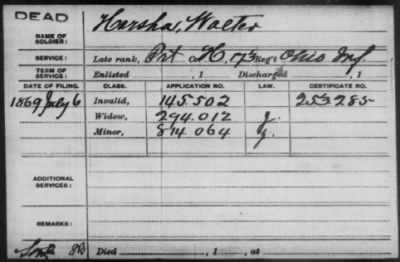 DEAD
NAME OF SOLDIER: Harsha, Walter
SERVICE: Late rank, Pvt Co H, 173 Reg't Ohio Inf
TERM OF SERVICE: Enlisted , 1 Discharged , 1
DATE OF FILING. CLASS. APPLICATION NO. LAW. CERTIFICATE NO.
1869 July 6 Invalid, 145.502 253.285
Widow, 294.012
Minor, 814.064
ADDITIONAL SERVICES:
REMARKS:
Died , 1 , at